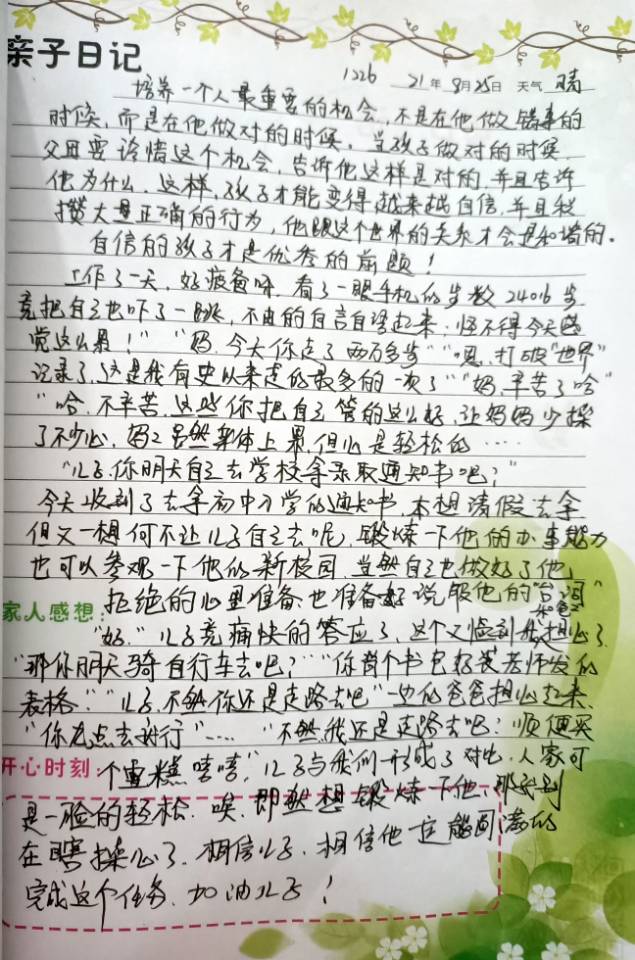 亲子日记
1226 21年8月25日 天气 晴
培养一个人最重要的机会,不是在他做错事的
时候,而是在他做对的时候。当孩子做对的时候
父母要珍惜这个机会,告诉他这样是对的,并且告诉
他为什么,这样,孩子才能变得越来越自信,并且积
攒大量正确的行为,他跟这个世界的关系才会是和谐的。
自信的孩子才是优秀的前题!
工作了一天,好疲惫呀,看了一眼手机的步数24016步
竟把自己也吓了一跳,不由的自言自语起来:怪不得今天感
觉这么累!”“妈,今天你走了两万多步”“嗯,打破“世界”
记录了,这是我有史以来走的最多的一次了”“妈,辛苦了哈”
“哈,不辛苦,这些你把自己管的这么好,让妈妈少操
了不少心,妈妈虽然身体上累,但心是轻松的……
“儿子,你明天自己去学校拿录取通知书吧?”
今天收到了去拿初中入学的通知书,本想请假去拿
但又一想何不让儿子自己去呢,锻炼一下他的办事能力
也可以参观一下他的新校园,当然自己也做好了他
拒绝的心里准备,也准备好说服他的“台词”
家人感想:
“好.”儿子竟痛快的答应了,这个又临到我担心了
“那你明天骑自行车去吧?”“你背个书包好装老师发的
表格”“儿子,不然你还是走路去吧”一边的爸爸担心起来,
“你慢点去就行”…… “不然我还是走路去吧?顺便买
开心时刻:
个蛋糕嘻嘻”儿子与我们形成了对比,人家可
是一脸的轻松.唉,即然想锻炼一下他,那就别
在瞎操心了.相信儿子,相信他一定能圆满的
完成这个任务.加油儿子!